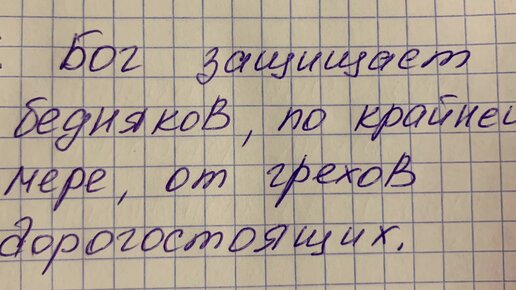 Бог защищает
бедняков, по крайней
мере, от грехов
дорогостоящих.